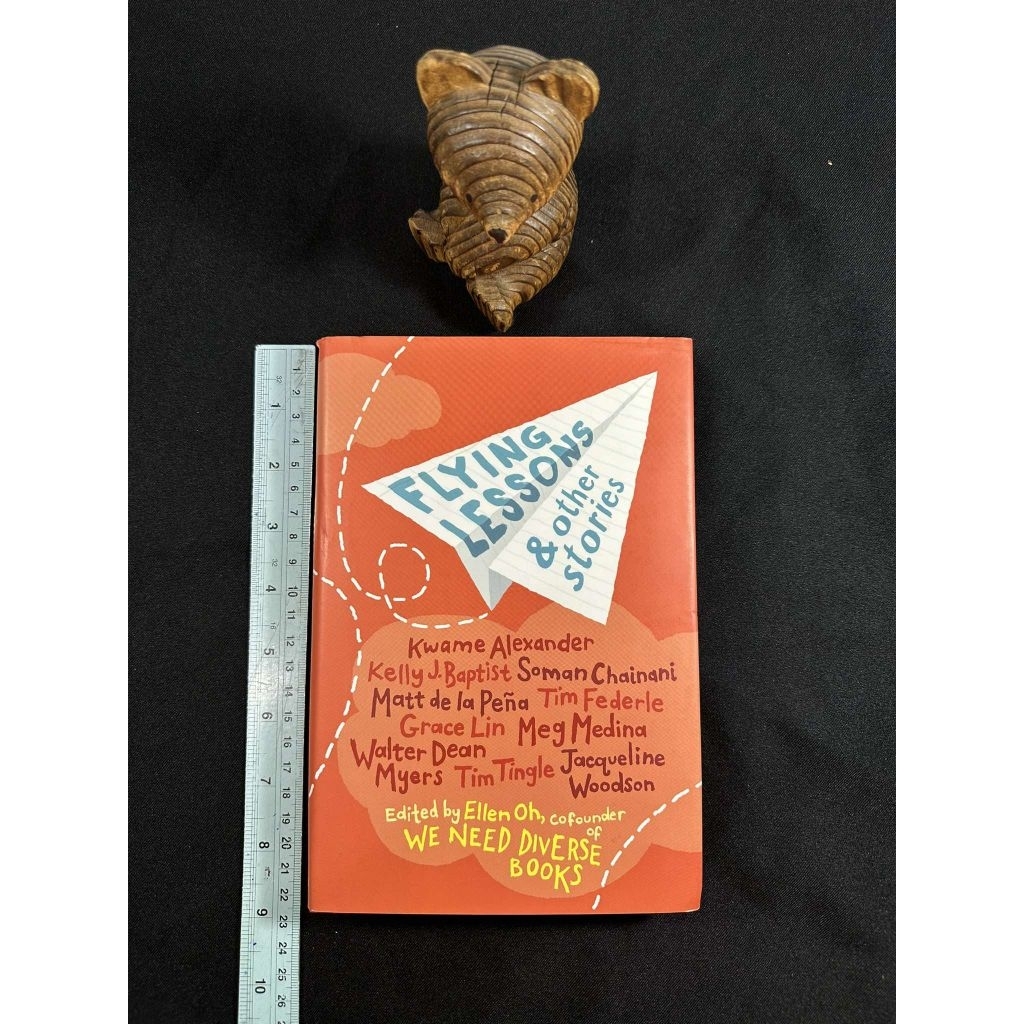 FLYING
LESSONS
& other
stories
Kwame Alexander
Kelly J. Baptist Soman Chainani
Matt de la Peña Tim Federle
Grace Lin Meg Medina
Walter Dean Myers Tim Tingle Jacqueline Woodson
Edited by Ellen Oh, cofounder
of
WE NEED DIVERSE
BOOKS
32
1
2
3
32
4
5
6
7
8
9
10
1
2
3
4
5
6
7
8
9
10
11
12
13
14
15
16
17
18
19
20
21
22
23
24
25
26